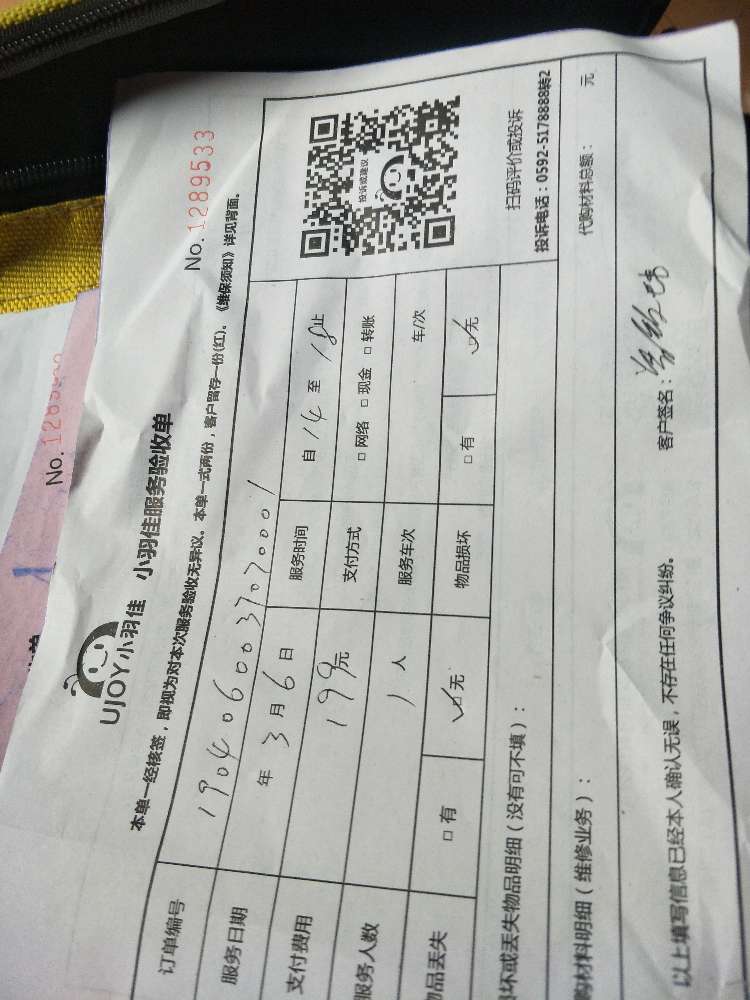 No.1289533
UJOY小羽佳 小羽佳服务验收单
本单一经核签，即视为对本次服务验收无异议。本单一式两份，客户留存一份(红)。《维保须知》详见背面。
订单编号 1904060037070001
服务日期 年3月6日 服务时间 自14至18止
支付费用 199元 支付方式 □网络 □现金 □转账
服务人数 1人 服务车次 车/次
品丢失 □有 □无 物品损坏 □有 □无
投诉或建议
扫码评价或投诉
投诉电话：0592-5178888转2
坏或丢失物品明细（没有可不填）：
购材料明细（维修业务）： 代购材料总额： 元
以上填写信息已经本人确认无误，不存在任何争议纠纷。 客户签名：
No.1289
单